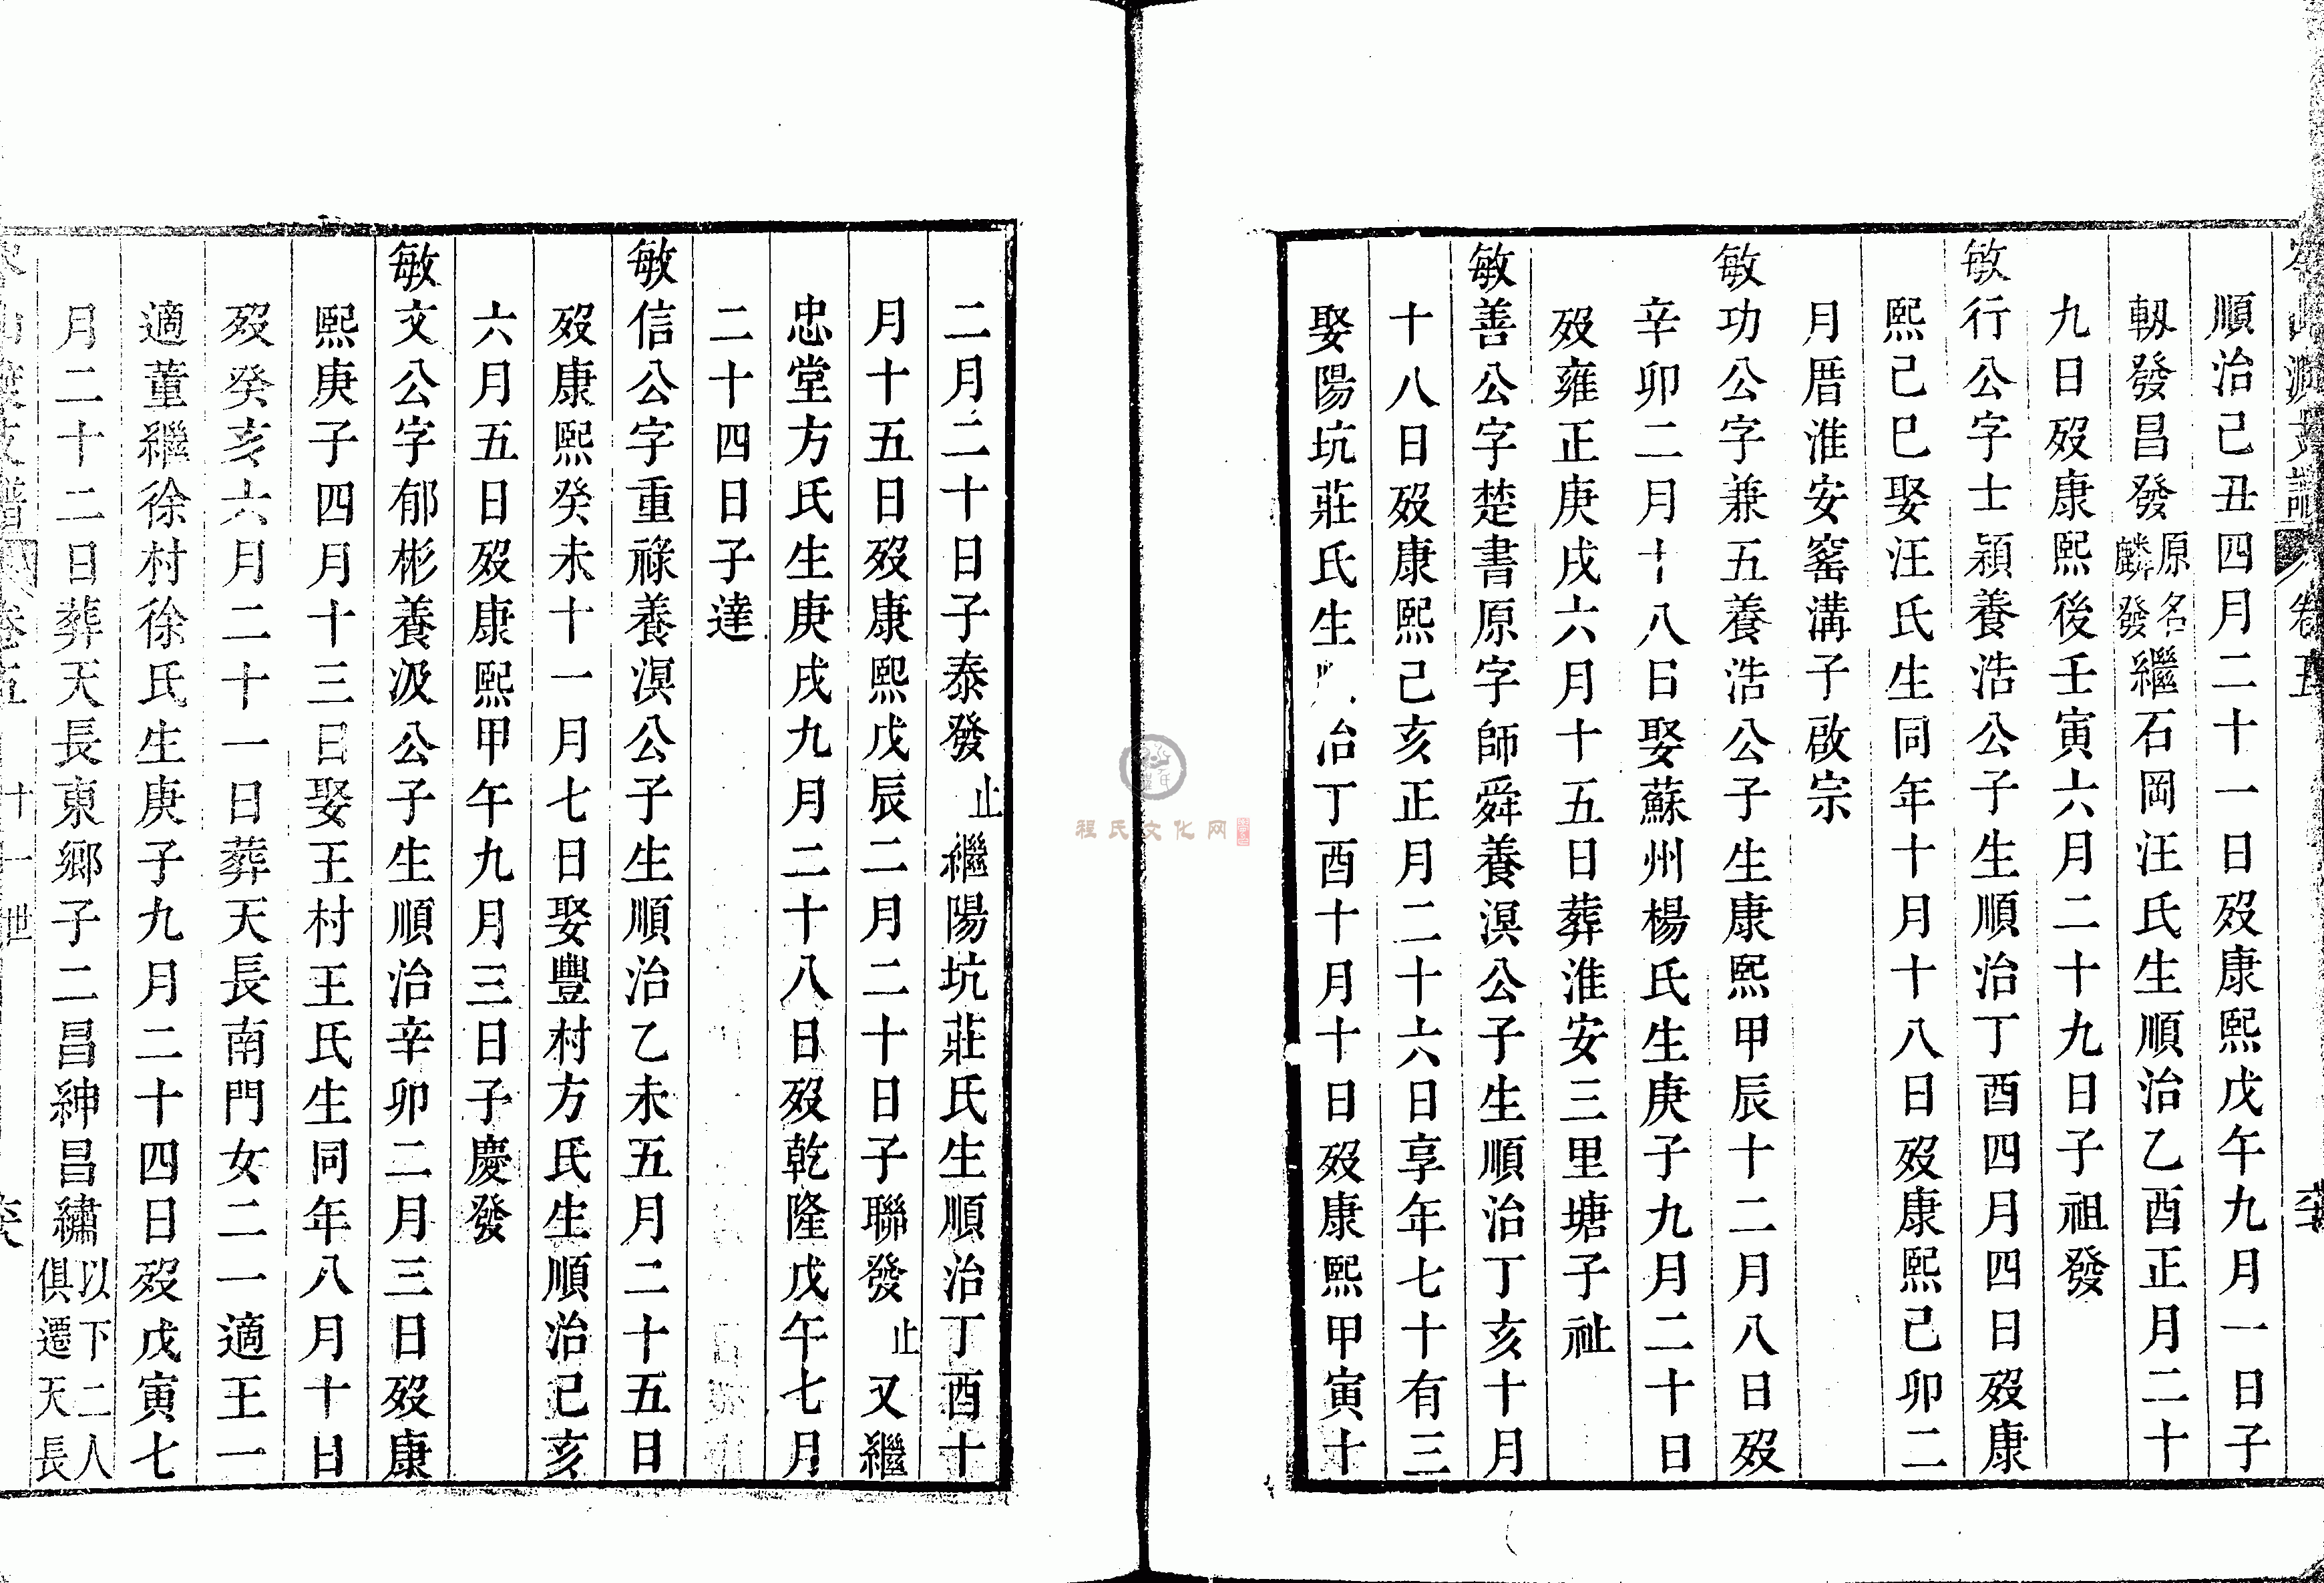 順治己丑四月二十一日歿康熙戊午九月一日子
㓞發昌發原名麟發繼石岡汪氏生順治乙酉正月二十
九日歿康熙後壬寅六月二十九日子祖發
敏行公字士潁養浩公子生順治丁酉四月四日歿康
熙己巳娶汪氏生同年十月十八日歿康熙己卯二
月厝淮安窰溝子啟宗
敏功公字兼五養浩公子生康熙甲辰十二月八日歿
辛卯二月十八日娶蘇州楊氏生庚子九月二十日
歿雍正庚戌六月十五日葬淮安三里塘子祉
敏善公字楚書原字師舜養溟公子生順治丁亥十月
十八日歿康熙己亥正月二十六日享年七十有三
娶陽坑莊氏生治丁酉十月十日歿康熙甲寅十
二月二十日子泰發止繼陽坑莊氏生順治丁酉十
月十五日歿康熙戊辰二月二十日子聯發止又繼
忠堂方氏生庚戌九月二十八日歿乾隆戊午七月
二十四日子達
敏信公字重祿養溟公子生順治乙未五月二十五日
歿康熙癸未十一月七日娶豐村方氏生順治己亥
六月五日歿康熙甲午九月三日子慶發
敏文公字郁彬養汲公子生順治辛卯二月三日歿康
熙庚子四月十三日娶王村王氏生同年八月十日
歿癸亥六月二十一日葬天長南門女二一適王一
適董繼徐村徐氏生庚子九月二十四日歿戊寅七
月二十二日葬天長東鄉子二昌紳昌繡以下二人俱遷天長
支譜 卷五 十一世
程氏文化网